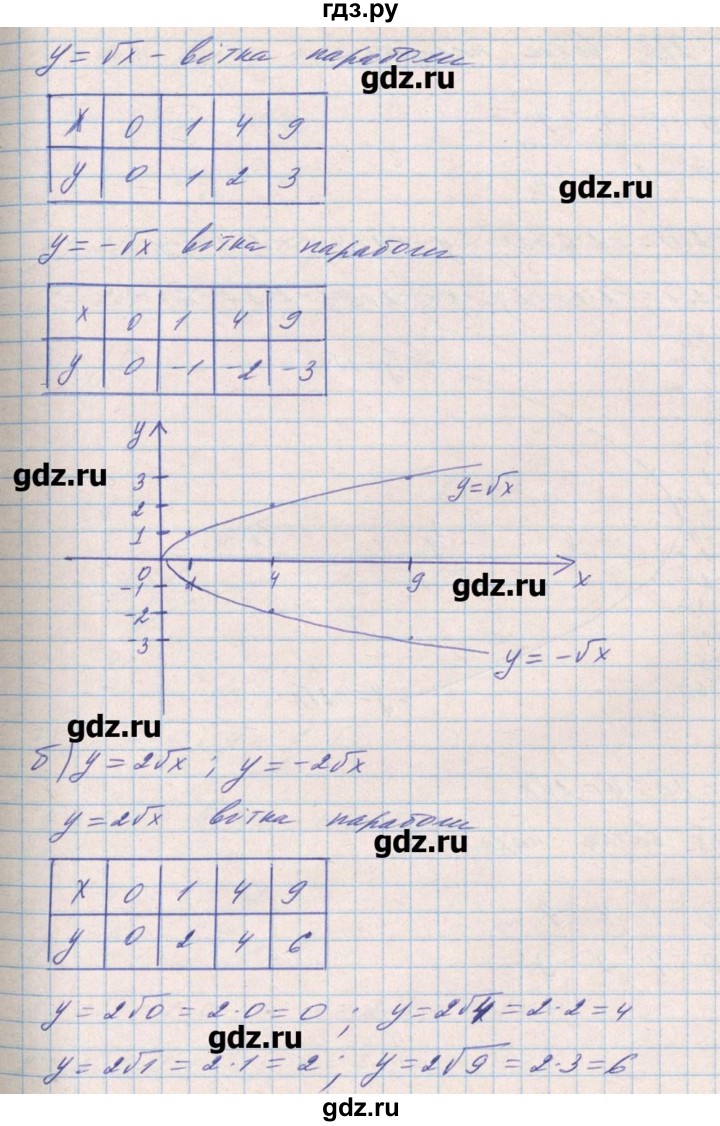 гдз.ру
y = √x - вітка параболи
gdz.ru
x 0 1 4 9
y 0 1 2 3
gdz.ru
y = -√x вітка параболи
x 0 1 4 9
y 0 -1 -2 -3
y
gdz.ru
3
2
1
y=√x
0 1 4 9 x
gdz.ru
-1
-2
-3
y = -√x
gdz.ru
б) y = 2√x ; y = -2√x
y = 2√x вітка параболи
gdz.ru
x 0 1 4 9
y 0 2 4 6
y = 2√0 = 2·0 = 0 ; y = 2√4 = 2·2 = 4
gdz.ru
y = 2√1 = 2·1 = 2 ; y = 2√9 = 2·3 = 6
gdz.ru